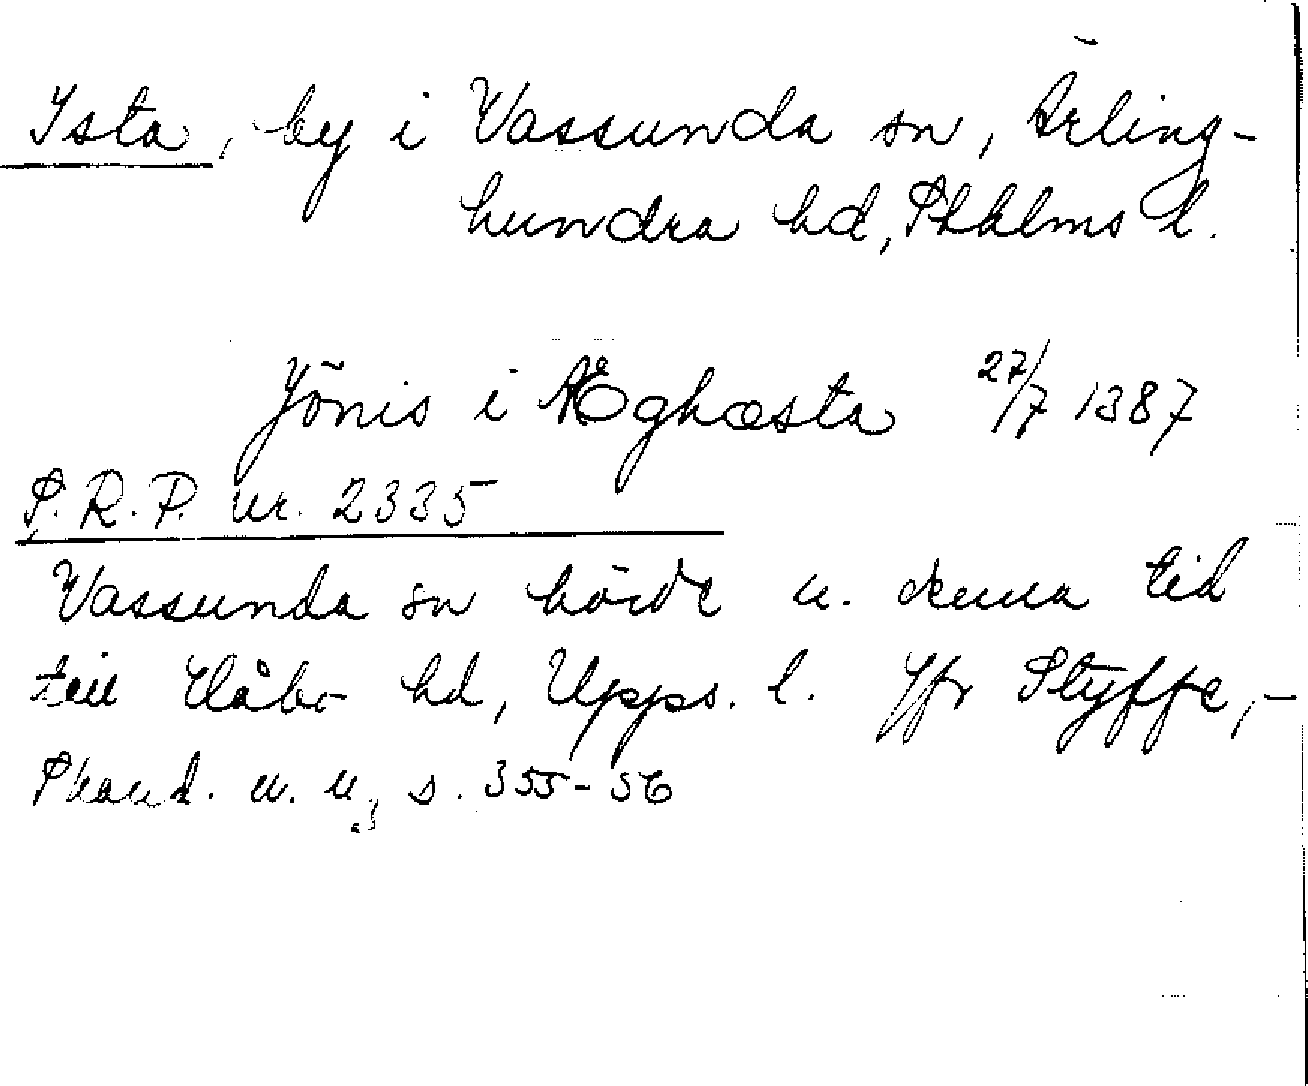 Ista, by i Vassunda sn, Ärling-
hundra hd, Sthlms l.
Jönis i Æghæsta 27/7 1387
S.R.P. nr. 2335
Vassunda sn hörde u. denna tid
till Håbo hd, Upps. l. Jfr Styffe,-
Skand. u. u, s. 355-56